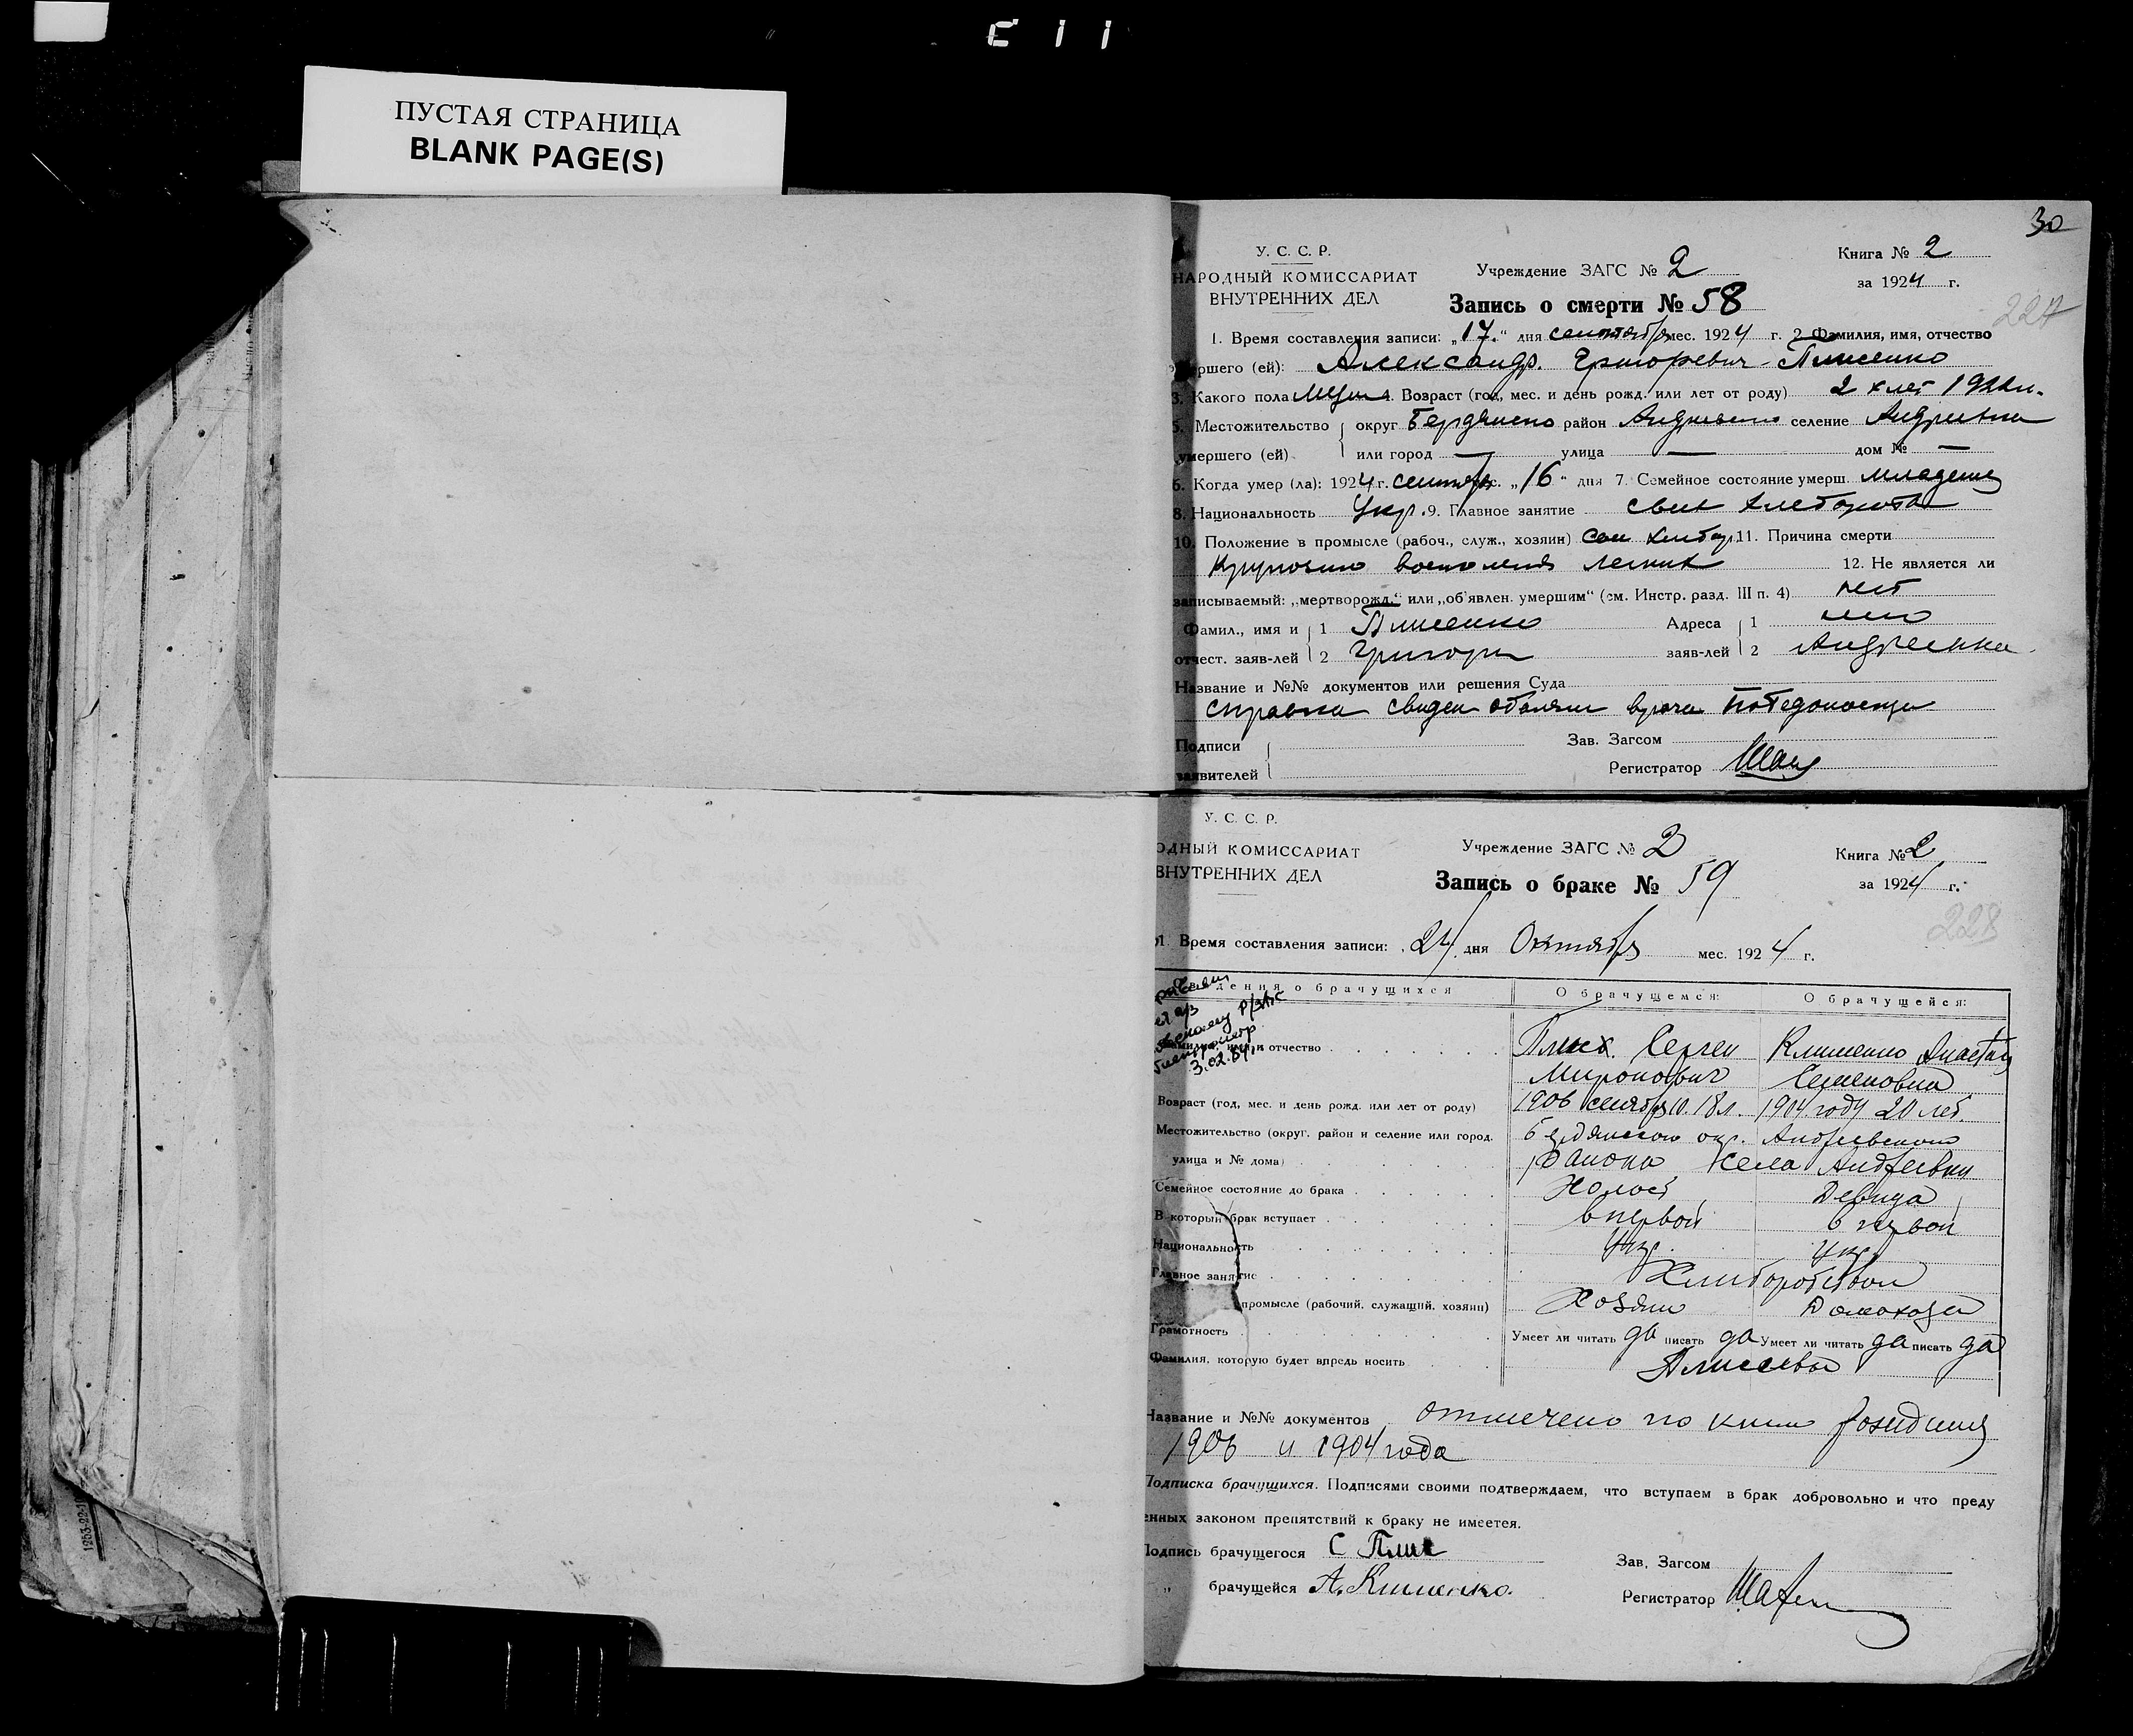 ПУСТАЯ СТРАНИЦА
BLANK PAGE(S)
30
У. С. С. Р.
НАРОДНЫЙ КОМИССАРИАТ
ВНУТРЕННИХ ДЕЛ
Учреждение ЗАГС № 2
Запись о смерти № 58
Книга № 2
за 1924 г.
227
1. Время составления записи: „17“ дня сентября мес. 1924 г. 2. Фамилия, имя, отчество
ршего (ей): Александр Григоревич
3. Какого пола Муж 4. Возраст (год, мес. и день рожд. или лет от роду) 2 х лет 1922
5. Местожительство округ Бердянско район Андривско селение Андривка
умершего (ей) или город — улица — дом № —
6. Когда умер (ла): 1924 г. сентябр мес. „16“ дня 7. Семейное состояние умерш. младенец
8. Национальность Укр. 9. Главное занятие
10. Положение в промысле (рабоч., служ., хозяин) 11. Причина смерти
Крупозно воспаления легких 12. Не является ли
записываемый: „мертворожд.“ или „об'явлен. умершим“ (см. Инстр. разд. III п. 4) нет
Фамил., имя и 1 Адреса 1 село
отчест. заяв-лей 2 Григори заяв-лей 2 Андреевка
Название и №№ документов или решения Суда
справка врача
Подписи Зав. Загсом
заявителей Регистратор
У. С. С. Р.
ОДНЫЙ КОМИССАРИАТ
ВНУТРЕННИХ ДЕЛ
Учреждение ЗАГС № 2
Запись о браке № 59
Книга № 2
за 1924 г.
228
1. Время составления записи: 24 дня Октября мес. 1924 г.
дения о брачущихся О брачущемся: О брачущейся:
3.02.84
Фамилия, имя и отчество Плис Сергей Клименко Анастасия
Миронович Семеновна
Возраст (год, мес. и день рожд. или лет от роду) 1906 сентябр 10. 18 л. 1904 году 20 лет.
Местожительство (округ, район и селение или город, Бердянского окр. Андреевского
улица и № дома) района села Андреевки
Семейное состояние до брака Холост Девица
В который брак вступает в первой в первой
Национальность Укр. Укр.
Главное занятие Хлиборобство
промысле (рабочий, служащий, хозяин) Хозяин Домохоз
Грамотность Умеет ли читать да писать да Умеет ли читать да писать да
Фамилия, которую будет впредь носить
Название и №№ документов отмечено по книг рождения
1906 и 1904 года
Подписка брачущихся. Подписями своими подтверждаем, что вступаем в брак добровольно и что преду
енных законом препятствий к браку не имеется.
Подпись брачущегося С Плис Зав. Загсом
„ брачущейся А. Клименко. Регистратор